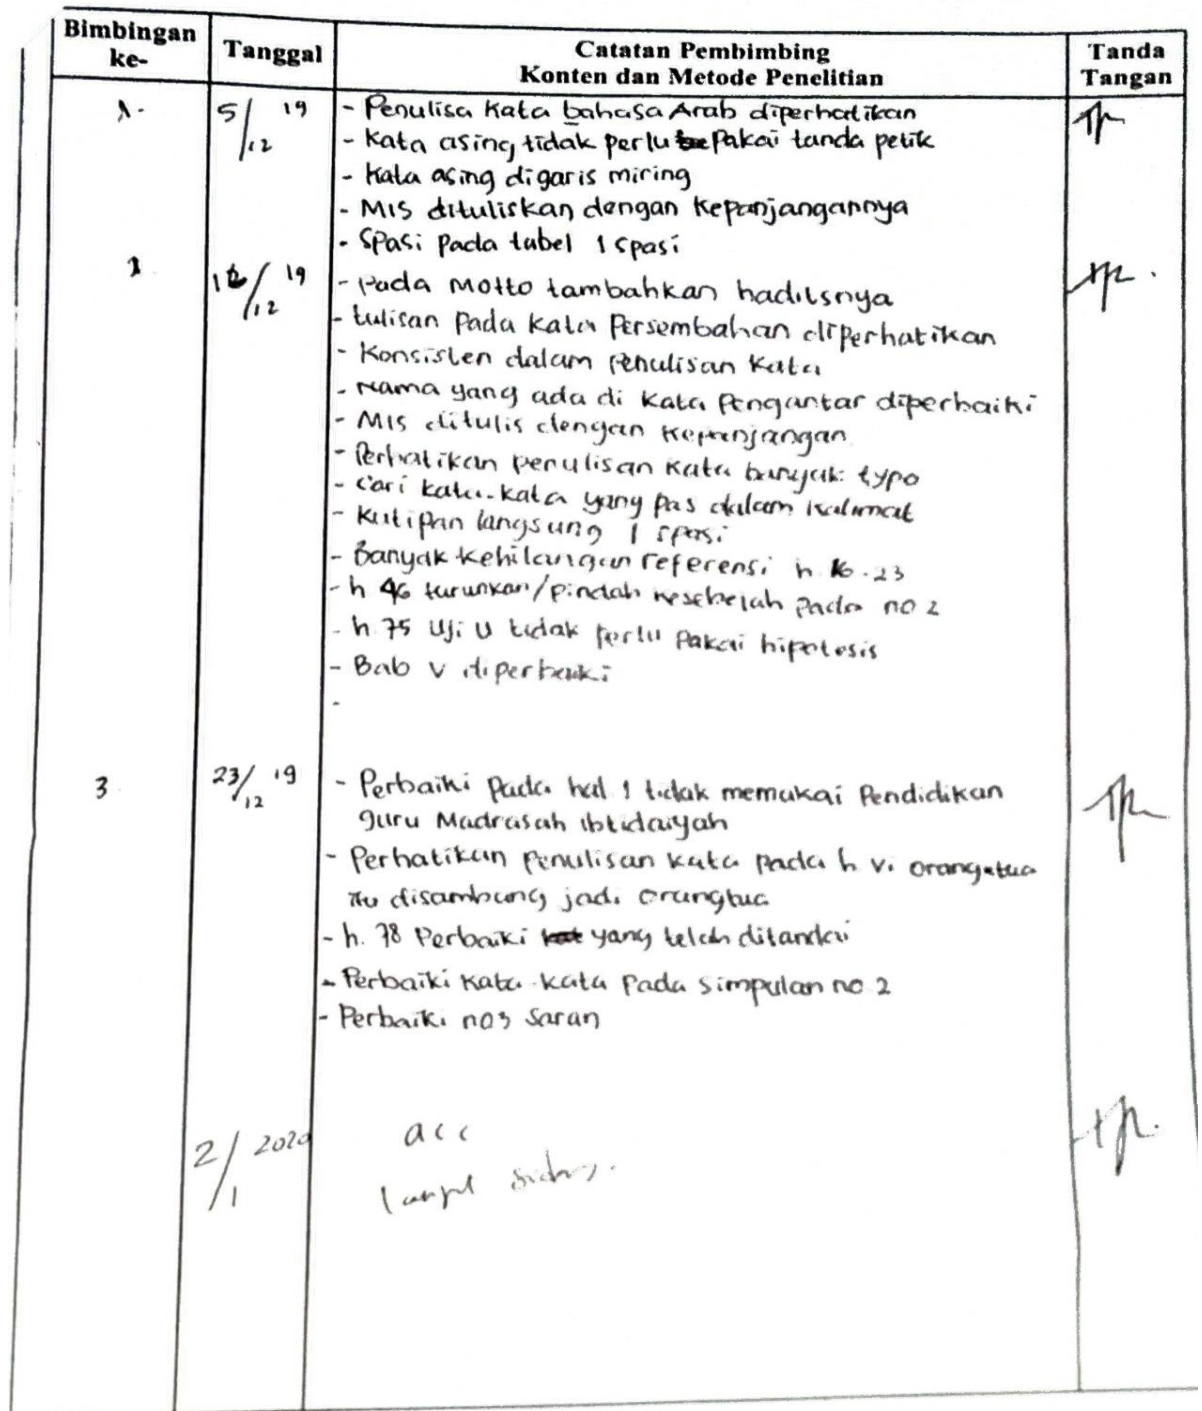 Bimbingan ke- Tanggal Catatan Pembimbing Konten dan Metode Penelitian Tanda Tangan
1. 5/12 19 - Penulisa kata bahasa Arab diperhatikan
- Kata asing tidak perlu Pakai tanda petik
- Kata asing digaris miring
- MIS dituliskan dengan Kepanjangannya
- Spasi pada tabel 1 spasi
12/12 19 - Pada Motto tambahkan haditsnya
- tulisan pada kata Persembahan diperhatikan
- Konsisten dalam penulisan kata
- Nama yang ada di kata Pengantar diperbaiki
- MIS ditulis dengan Kepanjangan
- Perhatikan penulisan kata banyak typo
- Cari kata-kata yang pas dalam kalimat
- Kutipan langsung 1 spasi
- Banyak kehilangan referensi h 16-23
- h 46 turunkan/pindah kesebelah pada no 2
- h.75 Uji U tidak perlu Pakai hipotesis
- Bab V diperbaiki
-
3. 23/12 19 - Perbaiki pada hal 1 tidak memakai Pendidikan
guru Madrasah ibtidaiyah
- Perhatikan penulisan kata pada h vi orang tua
itu disambung jadi orangtua
- h. 78 Perbaiki yang telah ditandai
- Perbaiki kata-kata Pada simpulan no 2
- Perbaiki no3 Saran
2/1 2020 acc
lanjut sidang.